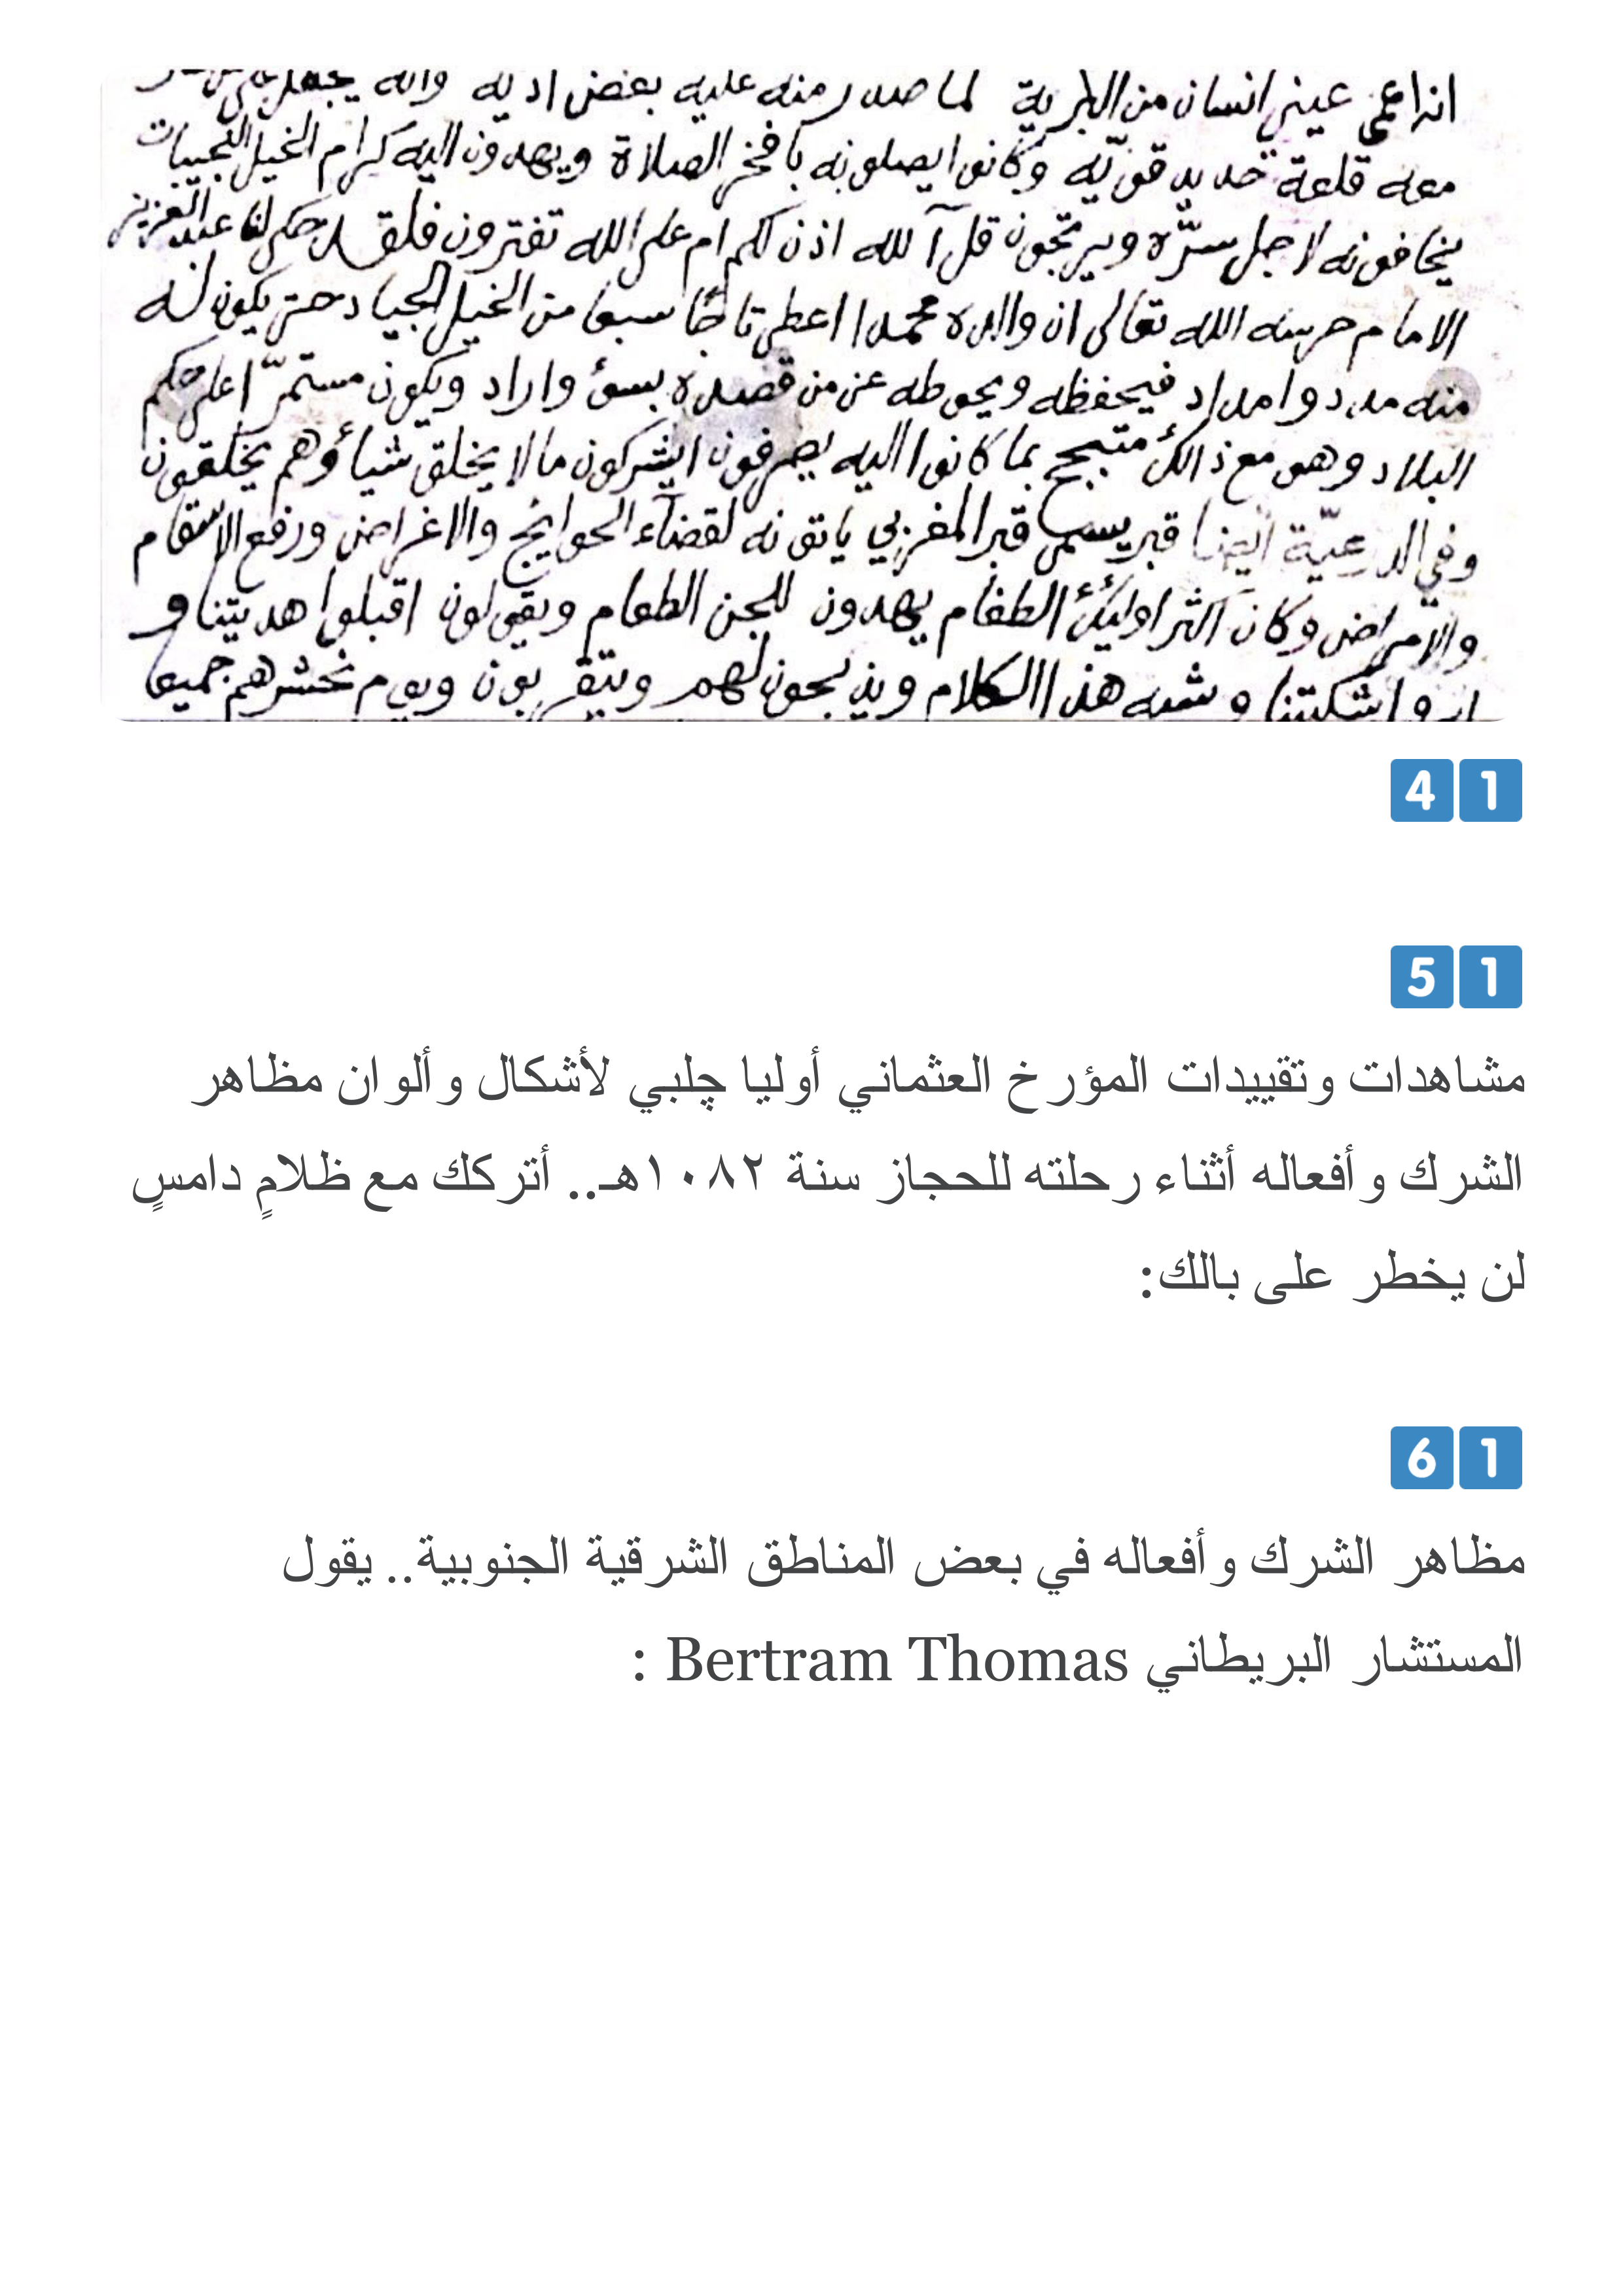 انه اعمى عيني انسان من الطربية لما صدر منه عليه بعض اديه وانه يجعل
معه قلعة حديد قويّه وكانوا يصلونه بافخر الصلاة ويهدون اليه كرام الخيل النجيبات
يخافونه لاجل سرّه ويرتجون قل آلله اذن لكم ام على الله تفترون فلقد حكى لنا عبد العزيز
الامام حرسه الله تعالى ان والده محمدا اعطى تاجًا سبعا من الخيل الجياد حتى يكون له
منه مدد وامداد فيحفظه ويحوطه عن من قصده بسوء واراد ويكون مستمرّا على حكم
البلاد وهو مع ذالك متبجح بما كانوا اليه يصرفون ايشركون ما لا يخلق شيأ وهم يخلقون
وفي الدرعيّة ايضا قبر يسمى قبر المغربي ياتونه لقضآء الحوايج والاغراض ورفع الاسقام
والامراض وكان اكثر اوليك الطغام يهدون للجن الطعام ويقولون اقبلوا هديتنا و
ابروا شكيتنا وشبه هذا الكلام ويذبحون لهم ويتقربون ويوم نحشرهم جميعا
41
51
مشاهدات وتقييدات المؤرخ العثماني أوليا چلبي لأشكال وألوان مظاهر
الشرك وأفعاله أثناء رحلته للحجاز سنة ١٠٨٢هـ.. أتركك مع ظلامٍ دامسٍ
لن يخطر على بالك:
61
مظاهر الشرك وأفعاله في بعض المناطق الشرقية الجنوبية.. يقول
المستشار البريطاني Bertram Thomas :